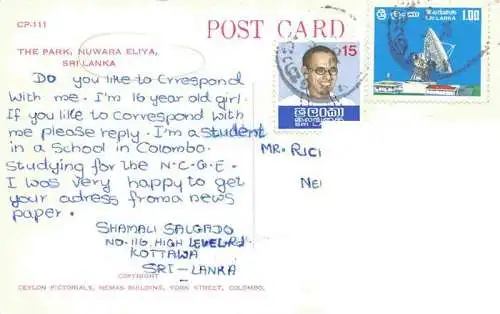 CP-111
POST CARD
THE PARK, NUWARA ELIYA,
SRI LANKA
Do you like to Crrespond
with me. I'm 16 year old girl.
If you like to Correspond with
me please reply. I'm a student
in a School in Colombo.
studying for the N.C.G.E.
I was very happy to get
your adress from a news
paper.
SHAMALI SALGADO
NO. 116, HIGH LEVEL RJ
KOTTAWA
SRI-LANKA
15
ශ්‍රී ලංකා
இலங்கை
SRI LANKA
1.00
MR. RICI
NE
COPYRIGHT
CEYLON PICTORIALS, HEMAS BUILDING, YORK STREET, COLOMBO.